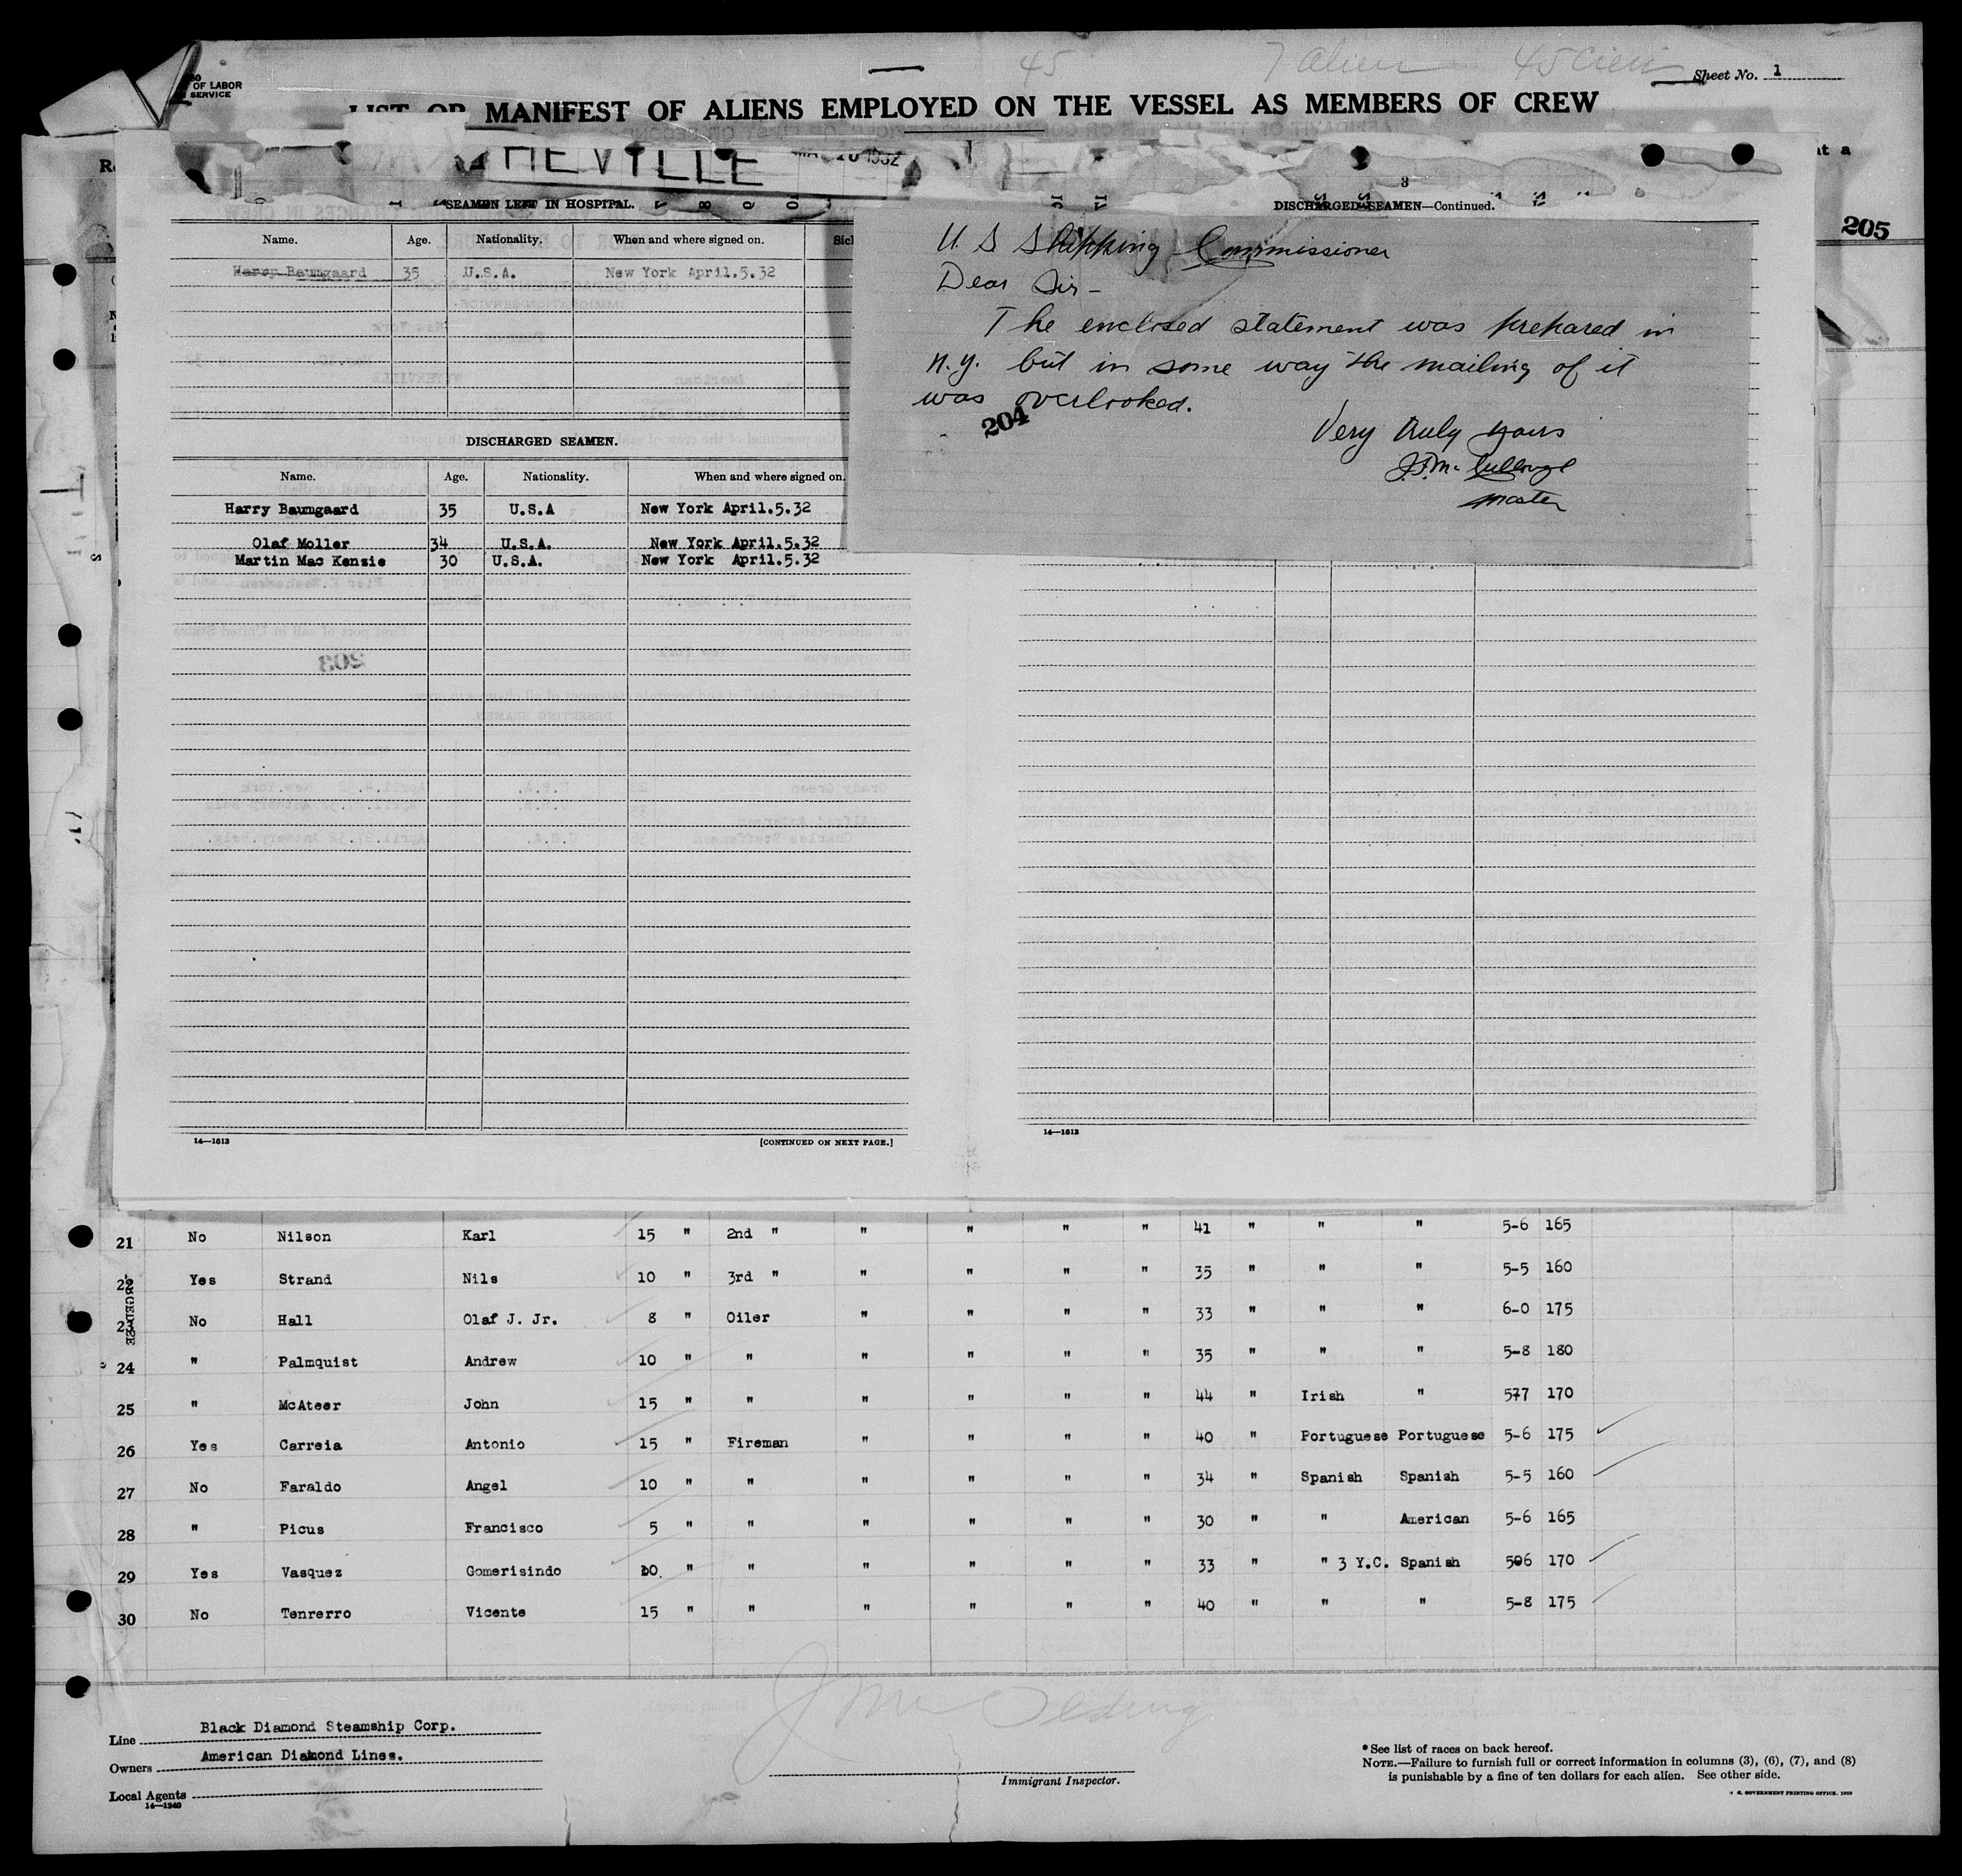 OF LABOR
SERVICE
45
7 Alien 45 Crew
Sheet No. 1
LIST OR MANIFEST OF ALIENS EMPLOYED ON THE VESSEL AS MEMBERS OF CREW
HEVILLE
1932
at a
205
3
SEAMEN LEFT IN HOSPITAL.
Name. Age. Nationality. When and where signed on.
Harry Baumgaard 35 U.S.A. New York April.5.32
DISCHARGED SEAMEN.
Name. Age. Nationality. When and where signed on.
Harry Baumgaard 35 U.S.A New York April.5.32
Olaf Moller 34 U.S.A. New York April.5.32
Martin Mac Kenzie 30 U.S.A. New York April.5.32
203
14—1613 [CONTINUED ON NEXT PAGE.]
DISCHARGED SEAMEN—Continued.
U. S Shipping Commissioner
Dear Sir-
The enclosed statement was prepared in
N.Y. but in some way the mailing of it
was overlooked.
204
Very truly yours
J.F. McCullough
Master
14—1613
21 No Nilson Karl 15 " 2nd " " " " " 41 " " " 5-6 165
22 Yes Strand Nils 10 " 3rd " " " " " 35 " " " 5-5 160
23 No Hall Olaf J. Jr. 8 " Oiler " " " " 33 " " " 6-0 175
24 " Palmquist Andrew 10 " " " " " " 35 " " " 5-8 180
25 " McAteer John 15 " " " " " " 44 " Irish " 577 170
26 Yes Carreia Antonio 15 " Fireman " " " " 40 " Portuguese Portuguese 5-6 175
27 No Faraldo Angel 10 " " " " " " 34 " Spanish Spanish 5-5 160
28 " Picus Francisco 5 " " " " " " 30 " " American 5-6 165
29 Yes Vasquez Gomerisindo 20. " " " " " " 33 " " 3 Y.C. Spanish 506 170
30 No Tenrerro Vicente 15 " " " " " " 40 " " " 5-8 175
Line Black Diamond Steamship Corp.
Owners American Diamond Lines.
Local Agents
14—1240
Immigrant Inspector.
*See list of races on back hereof.
NOTE.—Failure to furnish full or correct information in columns (3), (6), (7), and (8)
is punishable by a fine of ten dollars for each alien. See other side.
GOVERNMENT PRINTING OFFICE.